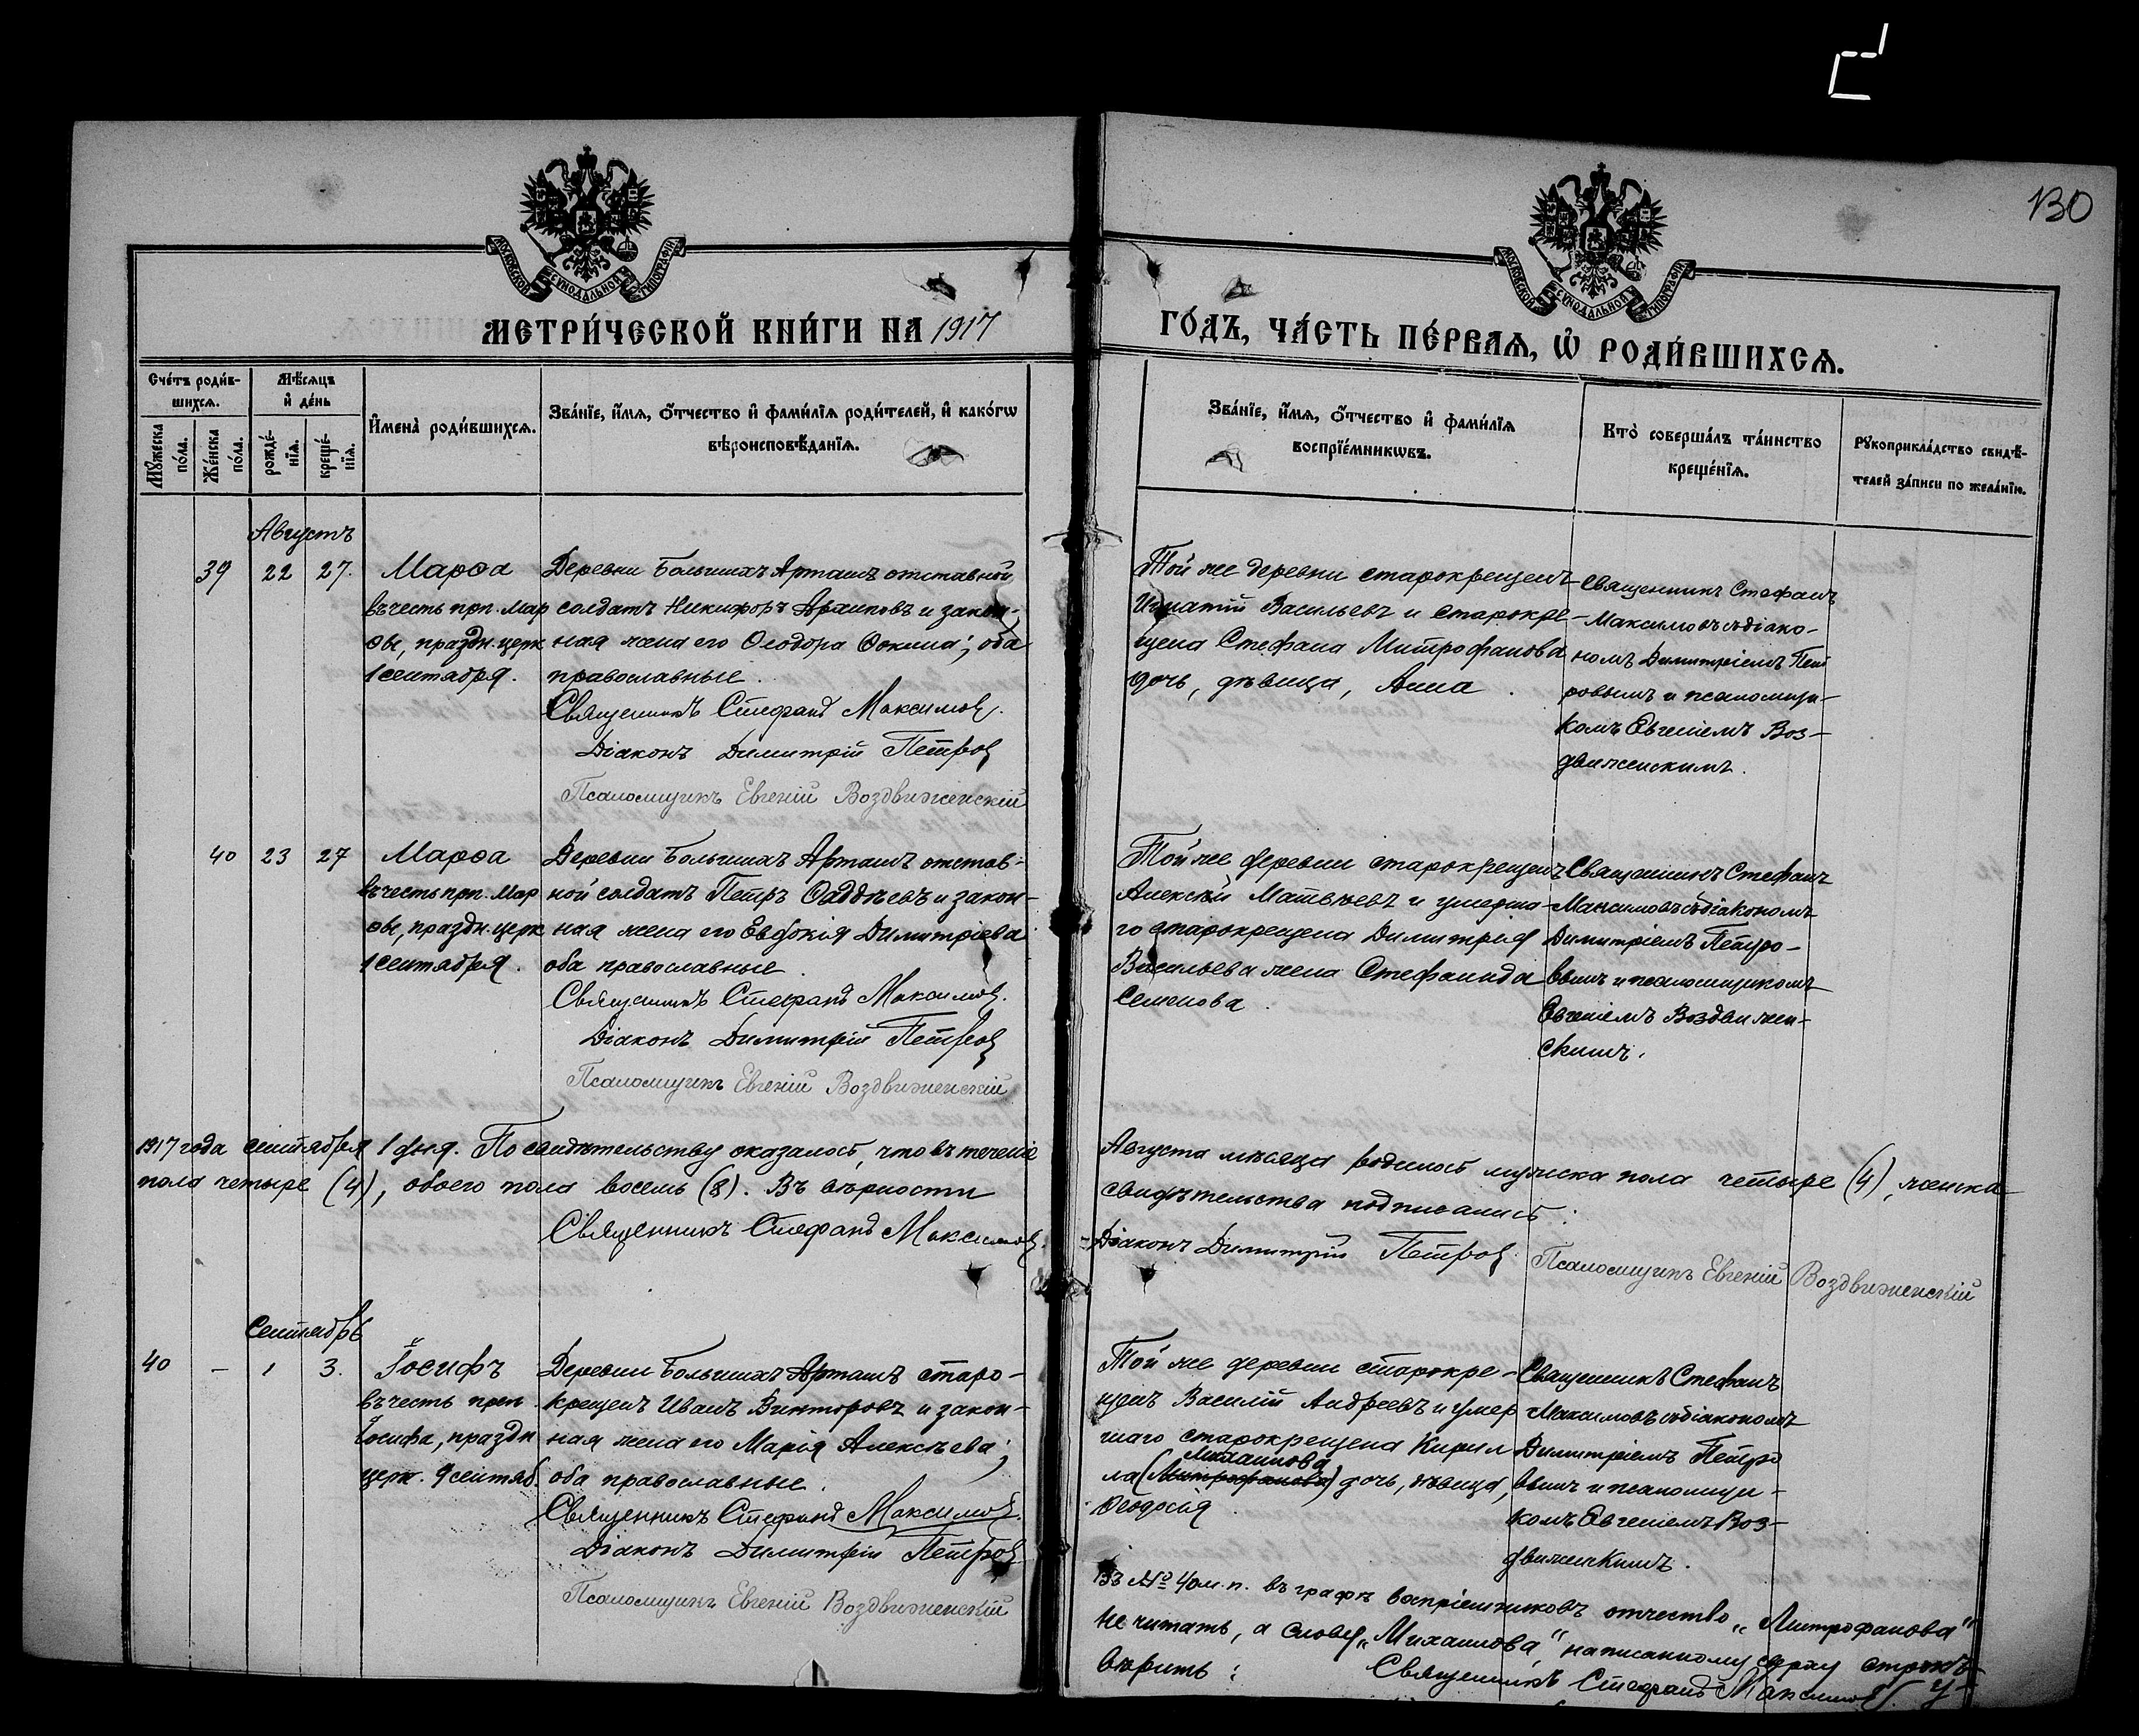 130
МОСКОВСКОЙ СѴНОДАЛЬНОЙ ТИПОГРАФІИ
МОСКОВСКОЙ СѴНОДАЛЬНОЙ ТИПОГРАФІИ
МЕТРИ́ЧЕСКОЙ КНИ́ГИ НА 1917
ГО́ДЪ, ЧА́СТЬ ПЕ́РВАѦ, Ѡ҆ РОДИ́ВШИХСѦ.
Сче́тъ роди́в-
шихсѧ.
Мѣ́сѧцъ
и҆ де́нь
Мꙋ́жеска
по́ла.
Же́нска
по́ла.
рожде́-
нїѧ.
креще́-
нїѧ.
И҆мена̀ роди́вшихсѧ.
Зва́нїе, и҆́мѧ, ѻ҆́тчество и҆ фами́лїѧ роди́телей, и҆ како́гѡ
вѣроисповѣ́данїѧ.
Зва́нїе, и҆́мѧ, ѻ҆́тчество и҆ фами́лїѧ
воспрїе́мникѡвъ.
Кто̀ соверша́лъ та́инство
креще́нїѧ.
Рꙋкоприкла́дство свидѣ́-
телей за́писи по жела́нїю.
Августъ
39 22 27.
Марѳа
въ честь прп. Мар
ѳы, праздн. церк
1 сентября.
Деревни Большихъ Арташъ отставной
солдатъ Никифоръ Архиповъ и закон-
ная жена его Ѳеодора Ѳокина; оба
православные.
Священникъ Стефанъ Максимовъ.
Діаконъ Димитрій Петровъ
Псаломщикъ Евгеній Воздвиженскій
Той же деревни старокрещенъ
Игнатій Васильевъ и старокре-
щена Стефана Митрофанова
дочь, дѣвица, Анна.
Священникъ Стефанъ
Максимовъ съ діако-
номъ Димитріемъ Пет
ровымъ и псаломщи-
комъ Евгеніемъ Воз-
движенскимъ.
40 23 27
Марѳа
въ честь прп. Мар
ѳы, праздн. церк
1 сентября.
Деревни Большихъ Арташъ отстав-
ной солдатъ Петръ Ѳаддѣевъ и закон-
ная жена его Евдокія Димитріева
оба православные.
Священникъ Стефанъ Максимовъ.
Діаконъ Димитрій Петровъ
Псаломщикъ Евгеній Воздвиженскій
Той же деревни старокрещенъ
Алексѣй Матвѣевъ и умерша-
го старокрещена Димитрія
Васильева жена Стефанида
Семенова.
Священникъ Стефанъ
Максимовъ съ діакономъ
Димитріемъ Петро-
вымъ и псаломщикомъ
Евгеніемъ Воздвижен-
скимъ.
1917 года сентября 1 дня. По свидѣтельству оказалось, что въ теченіе
Августа мѣсяца родилось мужска пола четыре (4), женска
пола четыре (4), обоего пола восемь (8). Въ вѣрности
свидѣтельства подписались:
Священникъ Стефанъ Максимовъ.
Діаконъ Димитрій Петровъ. Псаломщикъ Евгеній Воздвиженскій
Сентябрь
40 – 1 3.
Іосифъ
въ честь преп.
Іосифа, праздн
церк. 9 сентяб.
Деревни Большихъ Арташъ старо-
крещенъ Иванъ Викторовъ и закон-
ная жена его Марія Алексѣева;
оба православные.
Священникъ Стефанъ Максимовъ.
Діаконъ Димитрій Петровъ
Псаломщикъ Евгеній Воздвиженскій
Той же деревни старокре-
щенъ Василій Андреевъ и умер
шаго старокрещена Кирил
Михаилова
ла (Митрофанова) дочь, дѣвица,
Ѳеодосія.
Священникъ Стефанъ
Максимовъ съ діакономъ
Димитріемъ Петро
вымъ и псаломщи-
комъ Евгеніемъ Воз-
движенскимъ.
Въ № 40 м.п. въ графѣ воспріемниковъ отчество „Митрофанова“
не читать, а слову „Михаилова“, написанному сверху строкъ
вѣрить: Священникъ Стефанъ Максимовъ.